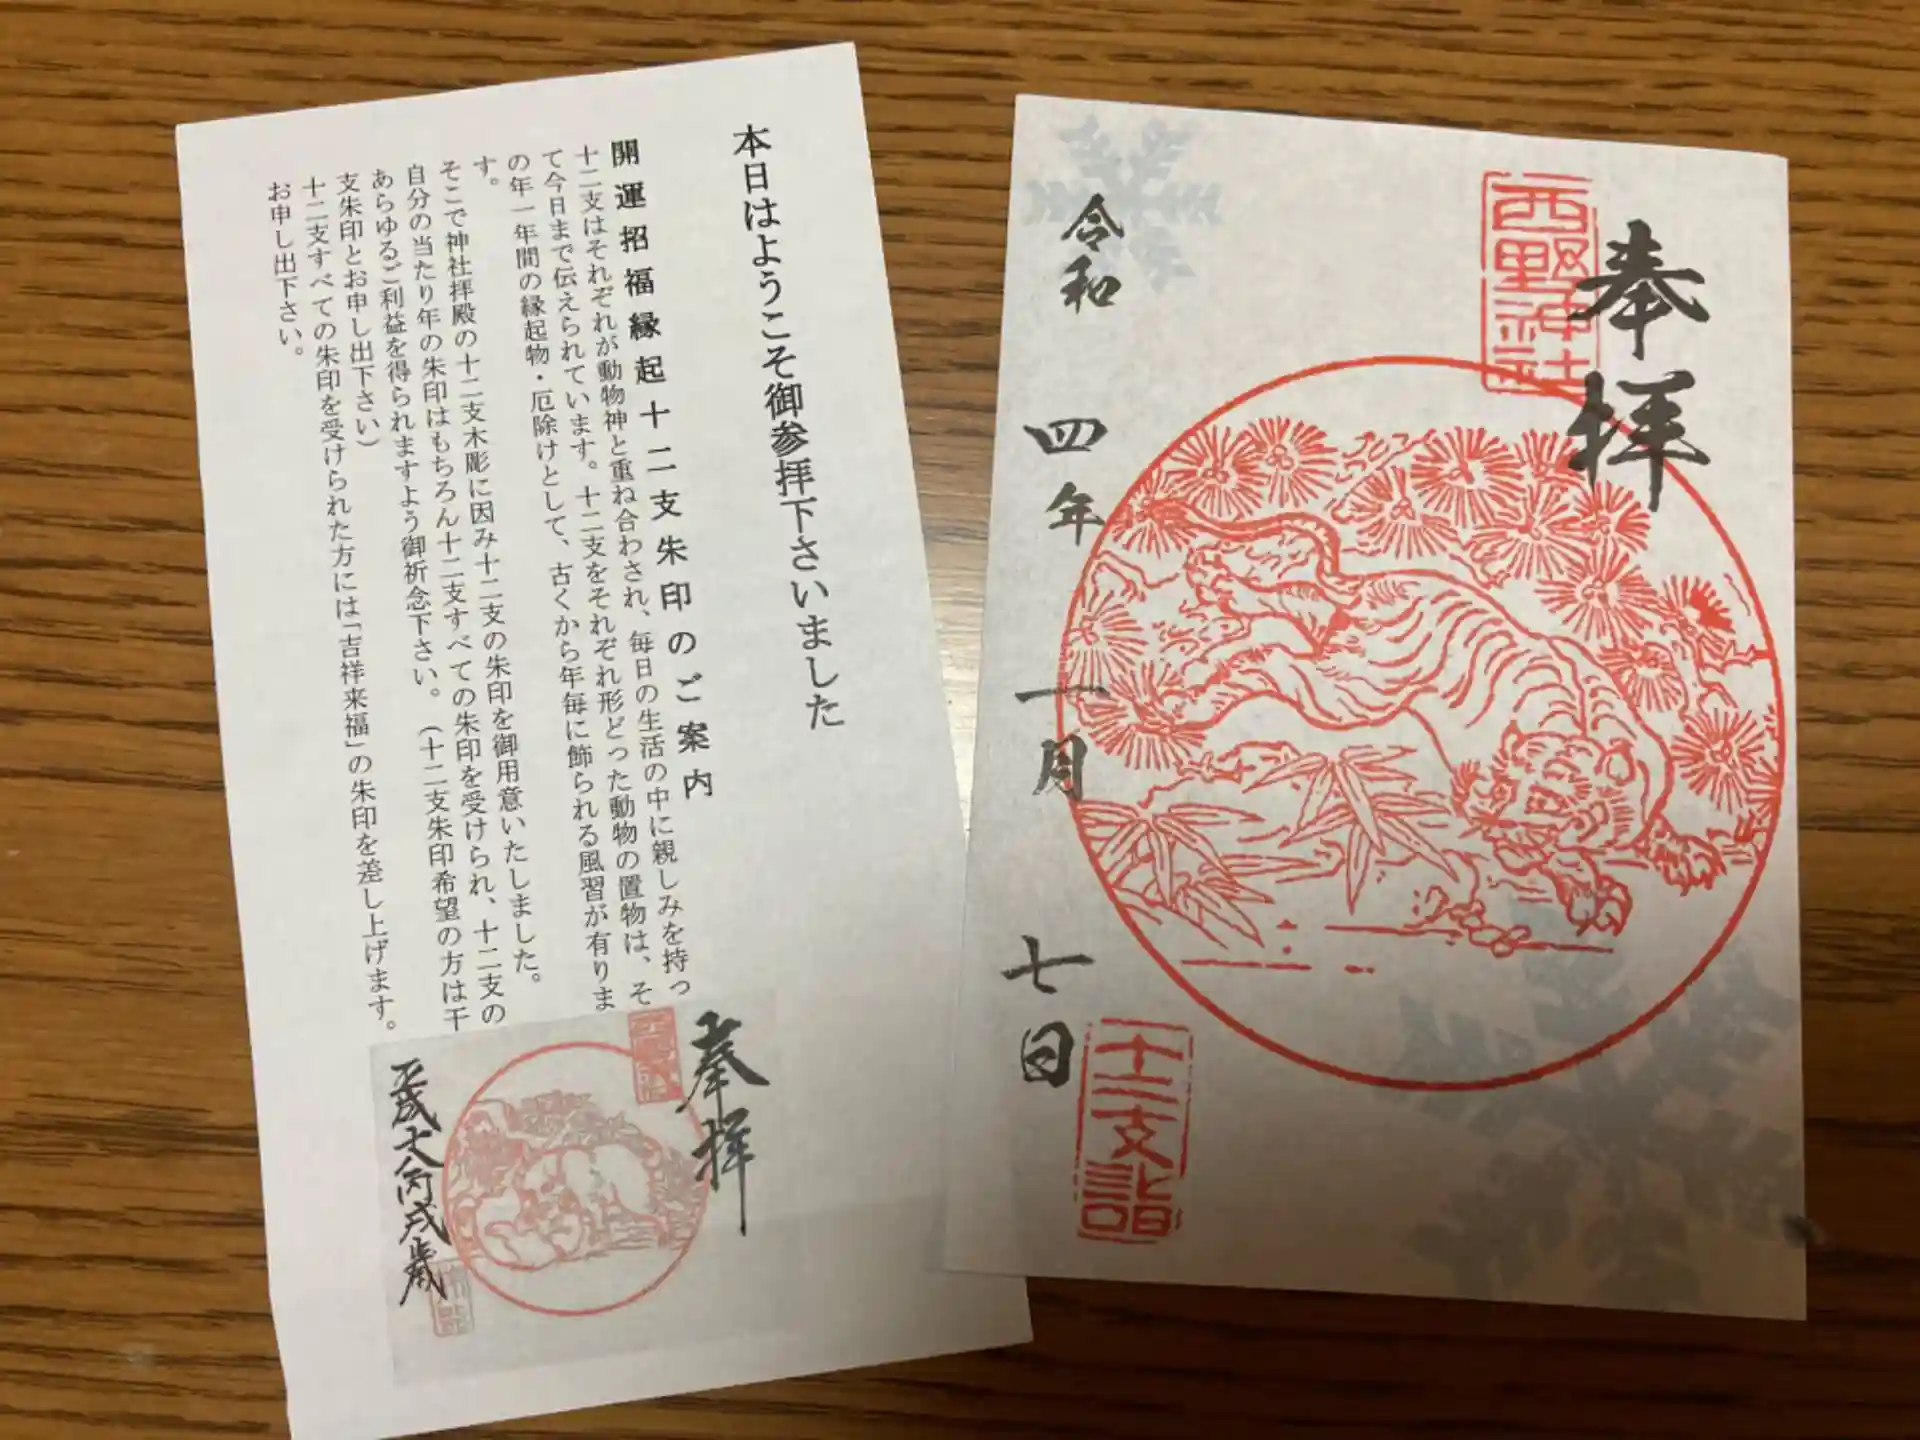 本日はようこそ御参拝下さいました
開運招福縁起十二支朱印のご案内
十二支はそれぞれが動物神と重ね合わされ、毎日の生活の中に親しみを持っ
て今日まで伝えられています。十二支をそれぞれ形どった動物の置物は、そ
の年一年間の縁起物・厄除けとして、古くから年毎に飾られる風習が有りま
す。
そこで神社拝殿の十二支木彫に因み十二支の朱印を御用意いたしました。
自分の当たり年の朱印はもちろん十二支すべての朱印を受けられ、十二支の
あらゆるご利益を得られますよう御祈念下さい。（十二支朱印希望の方は干
支朱印とお申し出下さい）
十二支すべての朱印を受けられた方には「吉祥来福」の朱印を差し上げます。
お申し出下さい。
奉拝
平成
丙戌歳
奉拝
西野神社
令和四年一月七日
十二支詣